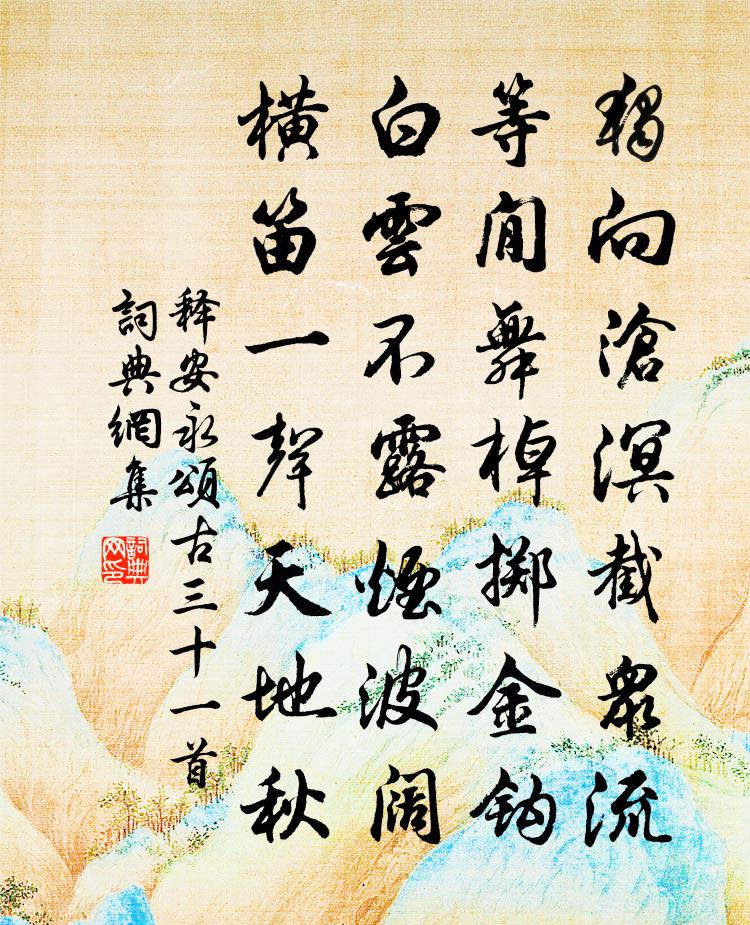 獨向滄溟截眾流
等閒舞棹掷金钩
白雲不露煙波阔
横笛一聲天地秋
释安永頌古三十一首
詞典網集
詞典网印